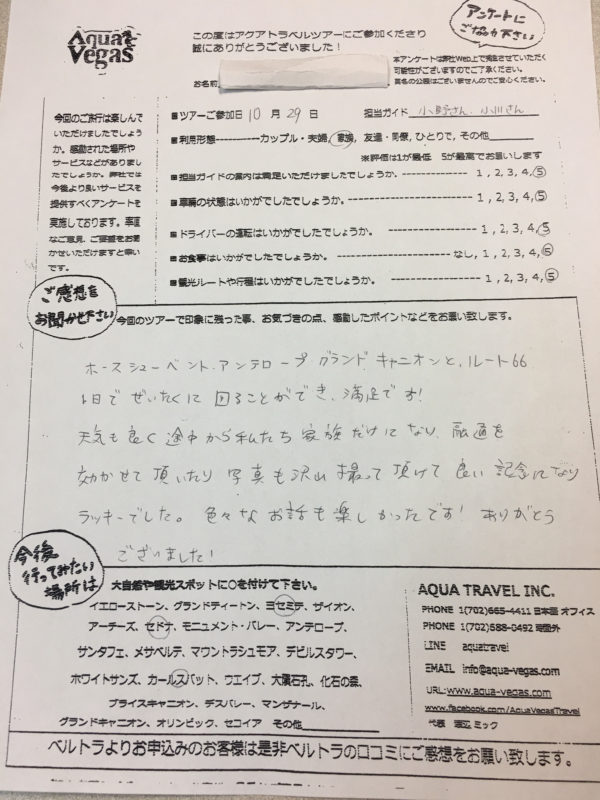 Aqua Vegas
この度はアクアトラベルツアーにご参加くださり
誠にありがとうございました！
アンケートに
ご協力下さい
お名前
本アンケートは弊社Web上で発表させていただく
可能性がございますのでご了承ください。
実名の公開はございませんのでご安心ください。
今回のご旅行は楽しんで
いただけましたでしょう
か。感動された場所や
サービスなどがありまし
たでしょうか。弊社では
今後より良いサービスを
提供すべくアンケートを
実施しております。率直
なご意見、ご要望をお聞
かせいただけますと幸い
です。
■ツアーご参加日 10 月 29 日 担当ガイド 小野さん、小川さん
■利用形態-----------カップル・夫婦, 家族, 友達・同僚, ひとりで, その他
※評価は1が最低 5が最高でお願いします
■担当ガイドの案内は満足いただけましたでしょうか。 ---------------- 1 , 2, 3, 4, 5
■車輌の状態はいかがでしたでしょうか。 ---------------- 1 , 2, 3, 4, 5
■ドライバーの運転はいかがでしたでしょうか。 ---------------- 1 , 2, 3, 4, 5
■お食事はいかがでしたでしょうか。 ---------------- なし, 1, 2, 3, 4, 5
■観光ルートや行程はいかがでしたでしょうか。 ---------------- 1 , 2, 3, 4, 5
ご感想を
お聞かせ下さい
今回のツアーで印象に残った事、お気づきの点、感動したポイントなどをお願い致します。
ホースシューベント、アンテロープ グランド キャニオンと、ルート66
1日でぜいたくに 回ることができ、満足です!
天気も良く 途中から私たち 家族だけになり、融通を
効かせて 頂いたり 写真も沢山 撮って 頂けて 良い 記念になり
ラッキーでした。 色々な お話も 楽しかったです! ありがとう
ございました!
今後
行ってみたい
場所は
大自然や観光スポットに○を付けて下さい。
イエローストーン、グランドティートン、ヨセミテ、ザイオン、
アーチーズ、セドナ、モニュメント・バレー、アンテロープ、
サンタフェ、メサベルデ、マウントラシュモア、デビルスタワー、
ホワイトサンズ、カールスバット、ウエイブ、大隕石孔、化石の森、
ブライスキャニオン、デスバレー、マンザナール、
グランドキャニオン、オリンピック、セコイア その他
AQUA TRAVEL INC.
PHONE 1(702)665-4411 日本語 オフィス
PHONE 1(702)688-8492 時間外
LINE aquatravel
EMAIL info@aqua-vegas.com
URL:www.aqua-vegas.com
www.facebook.com/AquaVegasTravel
代表 渡辺 ミック
ベルトラよりお申込みのお客様は是非ベルトラの口コミにご感想をお願い致します。